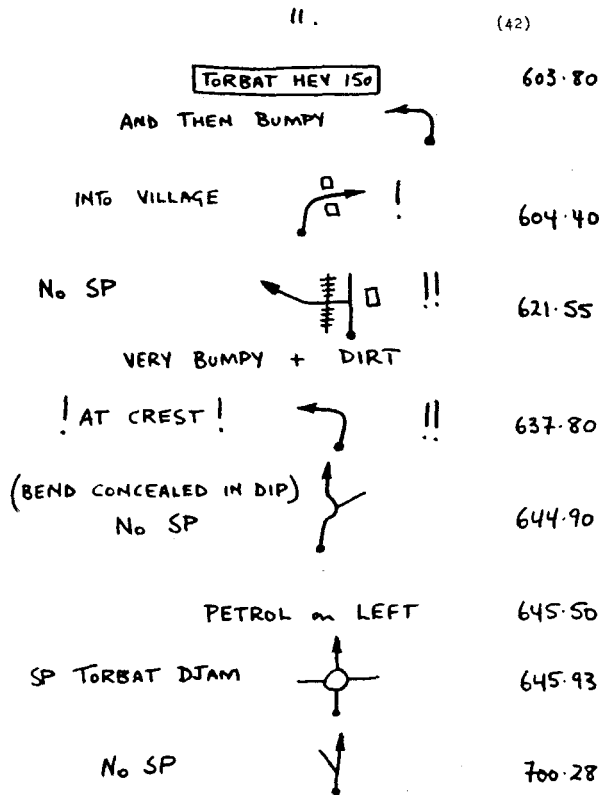 11. (42)
TORBAT HEY 150 603·80
AND THEN BUMPY
INTO VILLAGE ! 604·40
No SP !! 621·55
VERY BUMPY + DIRT
! AT CREST ! !! 637·80
(BEND CONCEALED IN DIP)
No SP 644·90
PETROL on LEFT 645·50
SP TORBAT DJAM 645·93
No SP 700·28